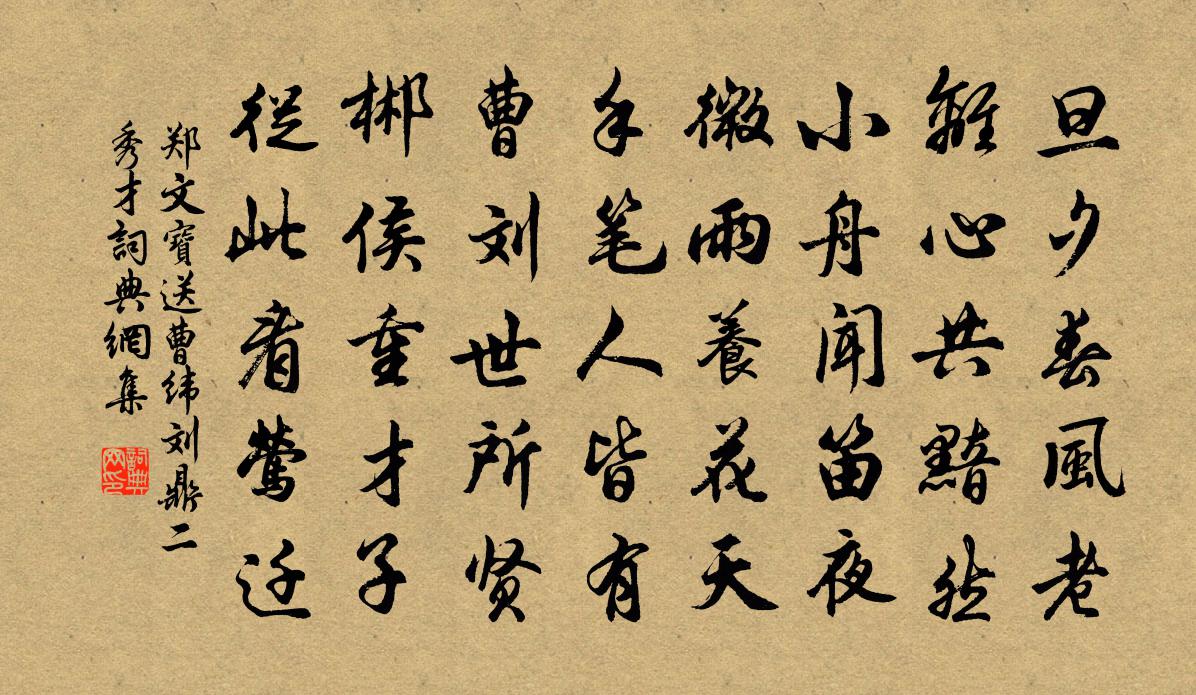 旦夕春風老
離心共黯然
小舟聞笛夜
微雨養花天
手笔人皆有
曹刘世所贤
郴侯重才子
从此看莺迁
郑文寶送曹纬刘鼎二
秀才詞典網集
詞典网印